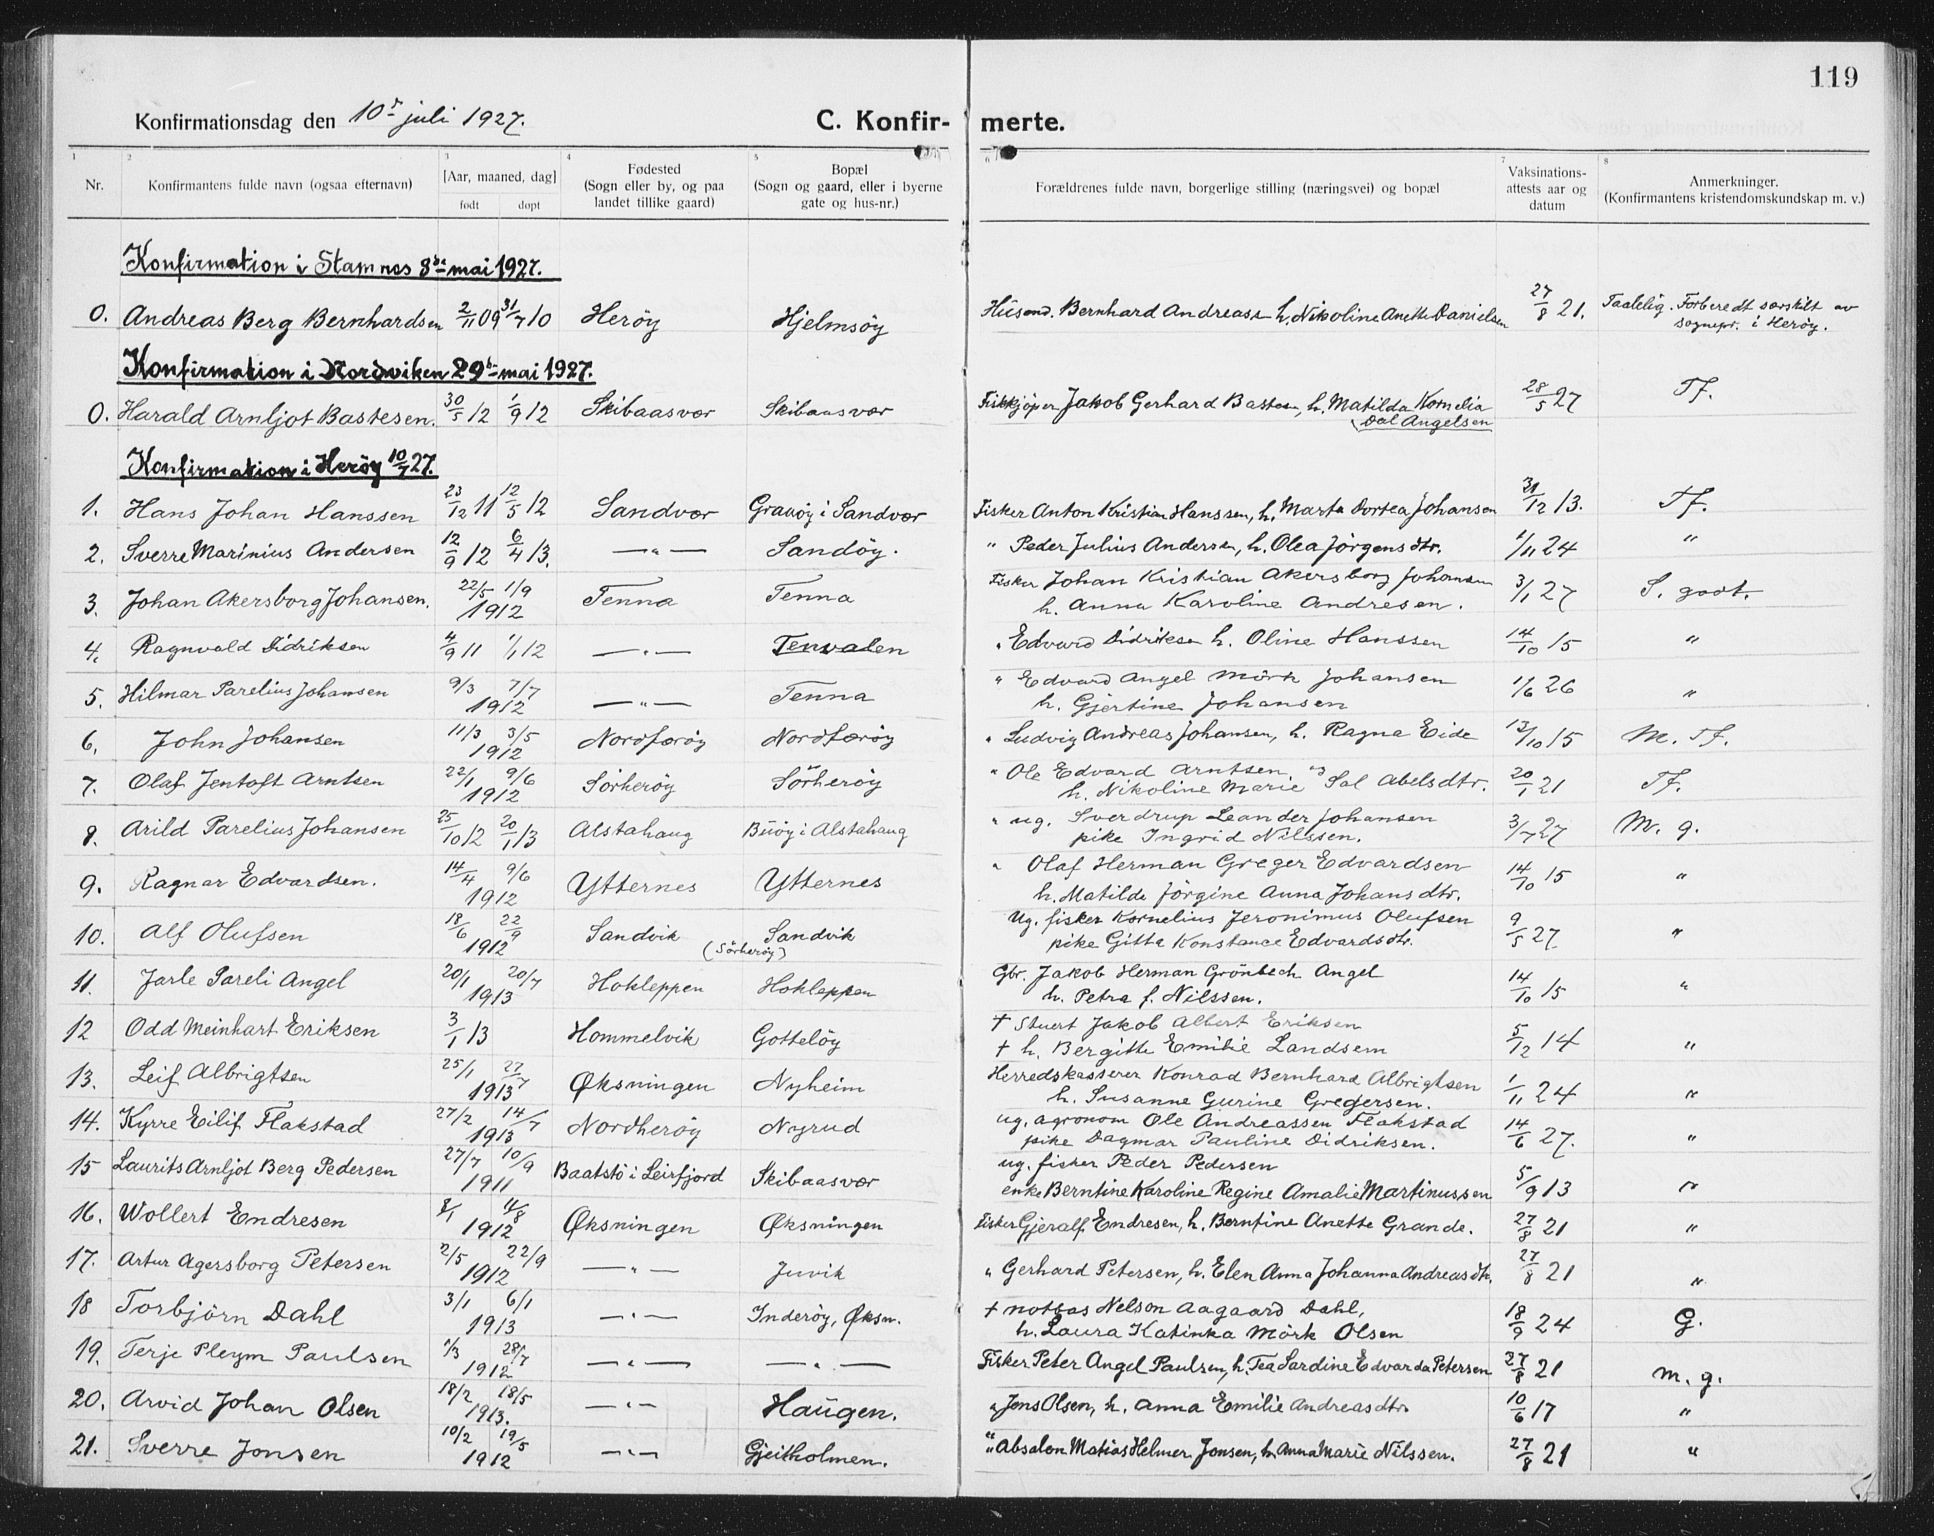 119
Konfirmationsdag den 10d juli 1927. C. Konfir- merte.
1 2 3 4 5 6 7 8
Nr. Konfirmantens fulde navn (ogsaa efternavn) [Aar, maaned, dag] født døpt Fødested (Sogn eller by, og paa landet tillike gaard) Bopæl (Sogn og gaard, eller i byerne gate og hus-nr.) Forældrenes fulde navn, borgerlige stilling (næringsvei) og bopæl Vaksinations-attests aar og datum Anmerkninger. (Konfirmantens kristendomskundskap m. v.)
Konfirmation i Stamnes 8de mai 1927.
0. Andreas Berg Bernhardsen 2/11 09 31/7 10 Herøy Hjelmsøy Husmd. Bernhard Andreass h. Nikoline Anette Danielsen 27/8 21. Taalelig. Forberedt særskilt av sognepr. i Herøy.
Konfirmation i Nordviken 29de mai 1927.
0. Harald Arnljot Bastesen. 30/5 12 1/9 12 Skibaasvær Skibaasvær Fiskkjöper Jakob Gerhard Bastesen, h. Matilda Kornelia Dal Angelsen 28/5 27 Tf.
Konfirmation i Herøy 10/7 27.
1. Hans Johan Hanssen 23/12 11 12/5 12 Sandvær Grauøy i Sandvær Fisker Anton Kristian Hanssen, h. Marta Dortea Johansen 31/12 13. Tf.
2. Sverre Marinius Andersen 12/9 12 6/4 13. —"— Sandöy. " Peder Julius Andersen, h. Olea Jörgensdtr. 1/11 24 "
3. Johan Akersborg Johansen. 22/5 1/9 1912 Tenna Tenna Fisker Johan Kristian Akersborg Johansen h. Anna Karoline Andresen. 3/1 27 S. godt.
4. Ragnvald Didriksen 4/9 11 1/1 12 —"— Tenvalen " Edvard Didriksen h. Oline Hanssen 14/10 15 "
5. Hilmar Parelius Johansen 9/3 7/7 1912 —"— Tenna " Edvard Angel Mörk Johansen h. Gjertine Johansen 1/6 26 "
6. John Johansen 11/3 3/5 1912 Nordfærøy Nordfærøy " Ludvig Andreas Johansen, h. Ragna Eide 12/10 15 M. Tf.
7. Olaf Jentoft Arntsen 22/1 9/6 1912 Sörherøy Sörherøy " Ole Edvard Arntsen h. Nikoline Marie Sal Abelsdtr. 20/1 21 Tf.
8. Arild Parelius Johansen 25/10 12 20/1 13 Alstahaug Buöy i Alstahaug " ug. Sverdrup Leander Johansen pike Ingrid Nilssen. 3/7 27 M. g.
9. Ragnar Edvardsen. 14/4 9/6 1912 Ytternes Ytternes " Olaf Herman Greger Edvardsen h. Matilde Jörgine Anna Johansdtr. 14/10 15 "
10. Alf Olufsen 18/6 22/9 1912 Sandvik Sandvik (Sörherøy) Ug. fisker Kornelius Jeronimus Olufsen pike Gitta Konstance Edvardsdtr. 9/5 27 "
11. Jarle Pareli Angel 20/1 20/7 1913 Hokleppen Hokleppen Gbr. Jakob Herman Grönbech Angel h. Petra f. Nilssen. 14/10 15 "
12 Odd Meinhart Eriksen 3/1 13 Hommelvik Gotteløy + Stuert Jakob Albert Eriksen + h. Bergitte Emilie Landsem 5/12 14 "
13. Leif Albrigtsen 25/1 27/7 1913 Øksningen Nyheim Herredskasserer Konrad Bernhard Albrigtsen h. Susanne Gurine Gregersen. 1/11 24 "
14. Kyrre Eilif Flakstad 27/2 14/7 1913 Nordherøy Nyrud ug. agronom Ole Andreassen Flakstad pike Dagmar Pauline Didriksen. 14/6 27. "
15 Laurits Arnljot Berg Pedersen 27/7 10/9 1911 Baatstö i Leirfjord Skibaasvær ug. fisker Peder Pedersen enke Berntine Karoline Regine Amalie Martinussen 5/9 13 "
16. Wollert Endresen 8/1 4/8 1912 Øksningen Øksningen Fisker Gjeralf Endresen, h. Berntine Anette Grande. 27/8 21 "
17. Artur Agersborg Petersen 2/5 22/9 1912 —"— Juvik " Gerhard Petersen, h. Elen Anna Johanna Andreasdtr. 27/8 21 "
18 Torbjörn Dahl 3/1 6/1 1913 —"— Inderöy, Øksn. + notbas Nelson Aagaard Dahl, h. Laura Katinka Mörk Olsen 18/9 24 G.
19. Terje Pleym Paulsen 1/3 28/7 1912 —"— —"— Fisker Peter Angel Paulsen, h. Tea Sardine Edvarda Petersen 27/8 21 m. g.
20. Arvid Johan Olsen 18/2 18/5 1913. —"— Haugen. " Jens Olsen, h. Anna Emilie Andreasdtr 10/6 17 "
21. Sverre Jonsen 10/2 19/5 1912 —"— Gjeitholmen. " Absalon Matias Helmer Jonsen, h. Anna Marie Nilssen. 27/8 21 "